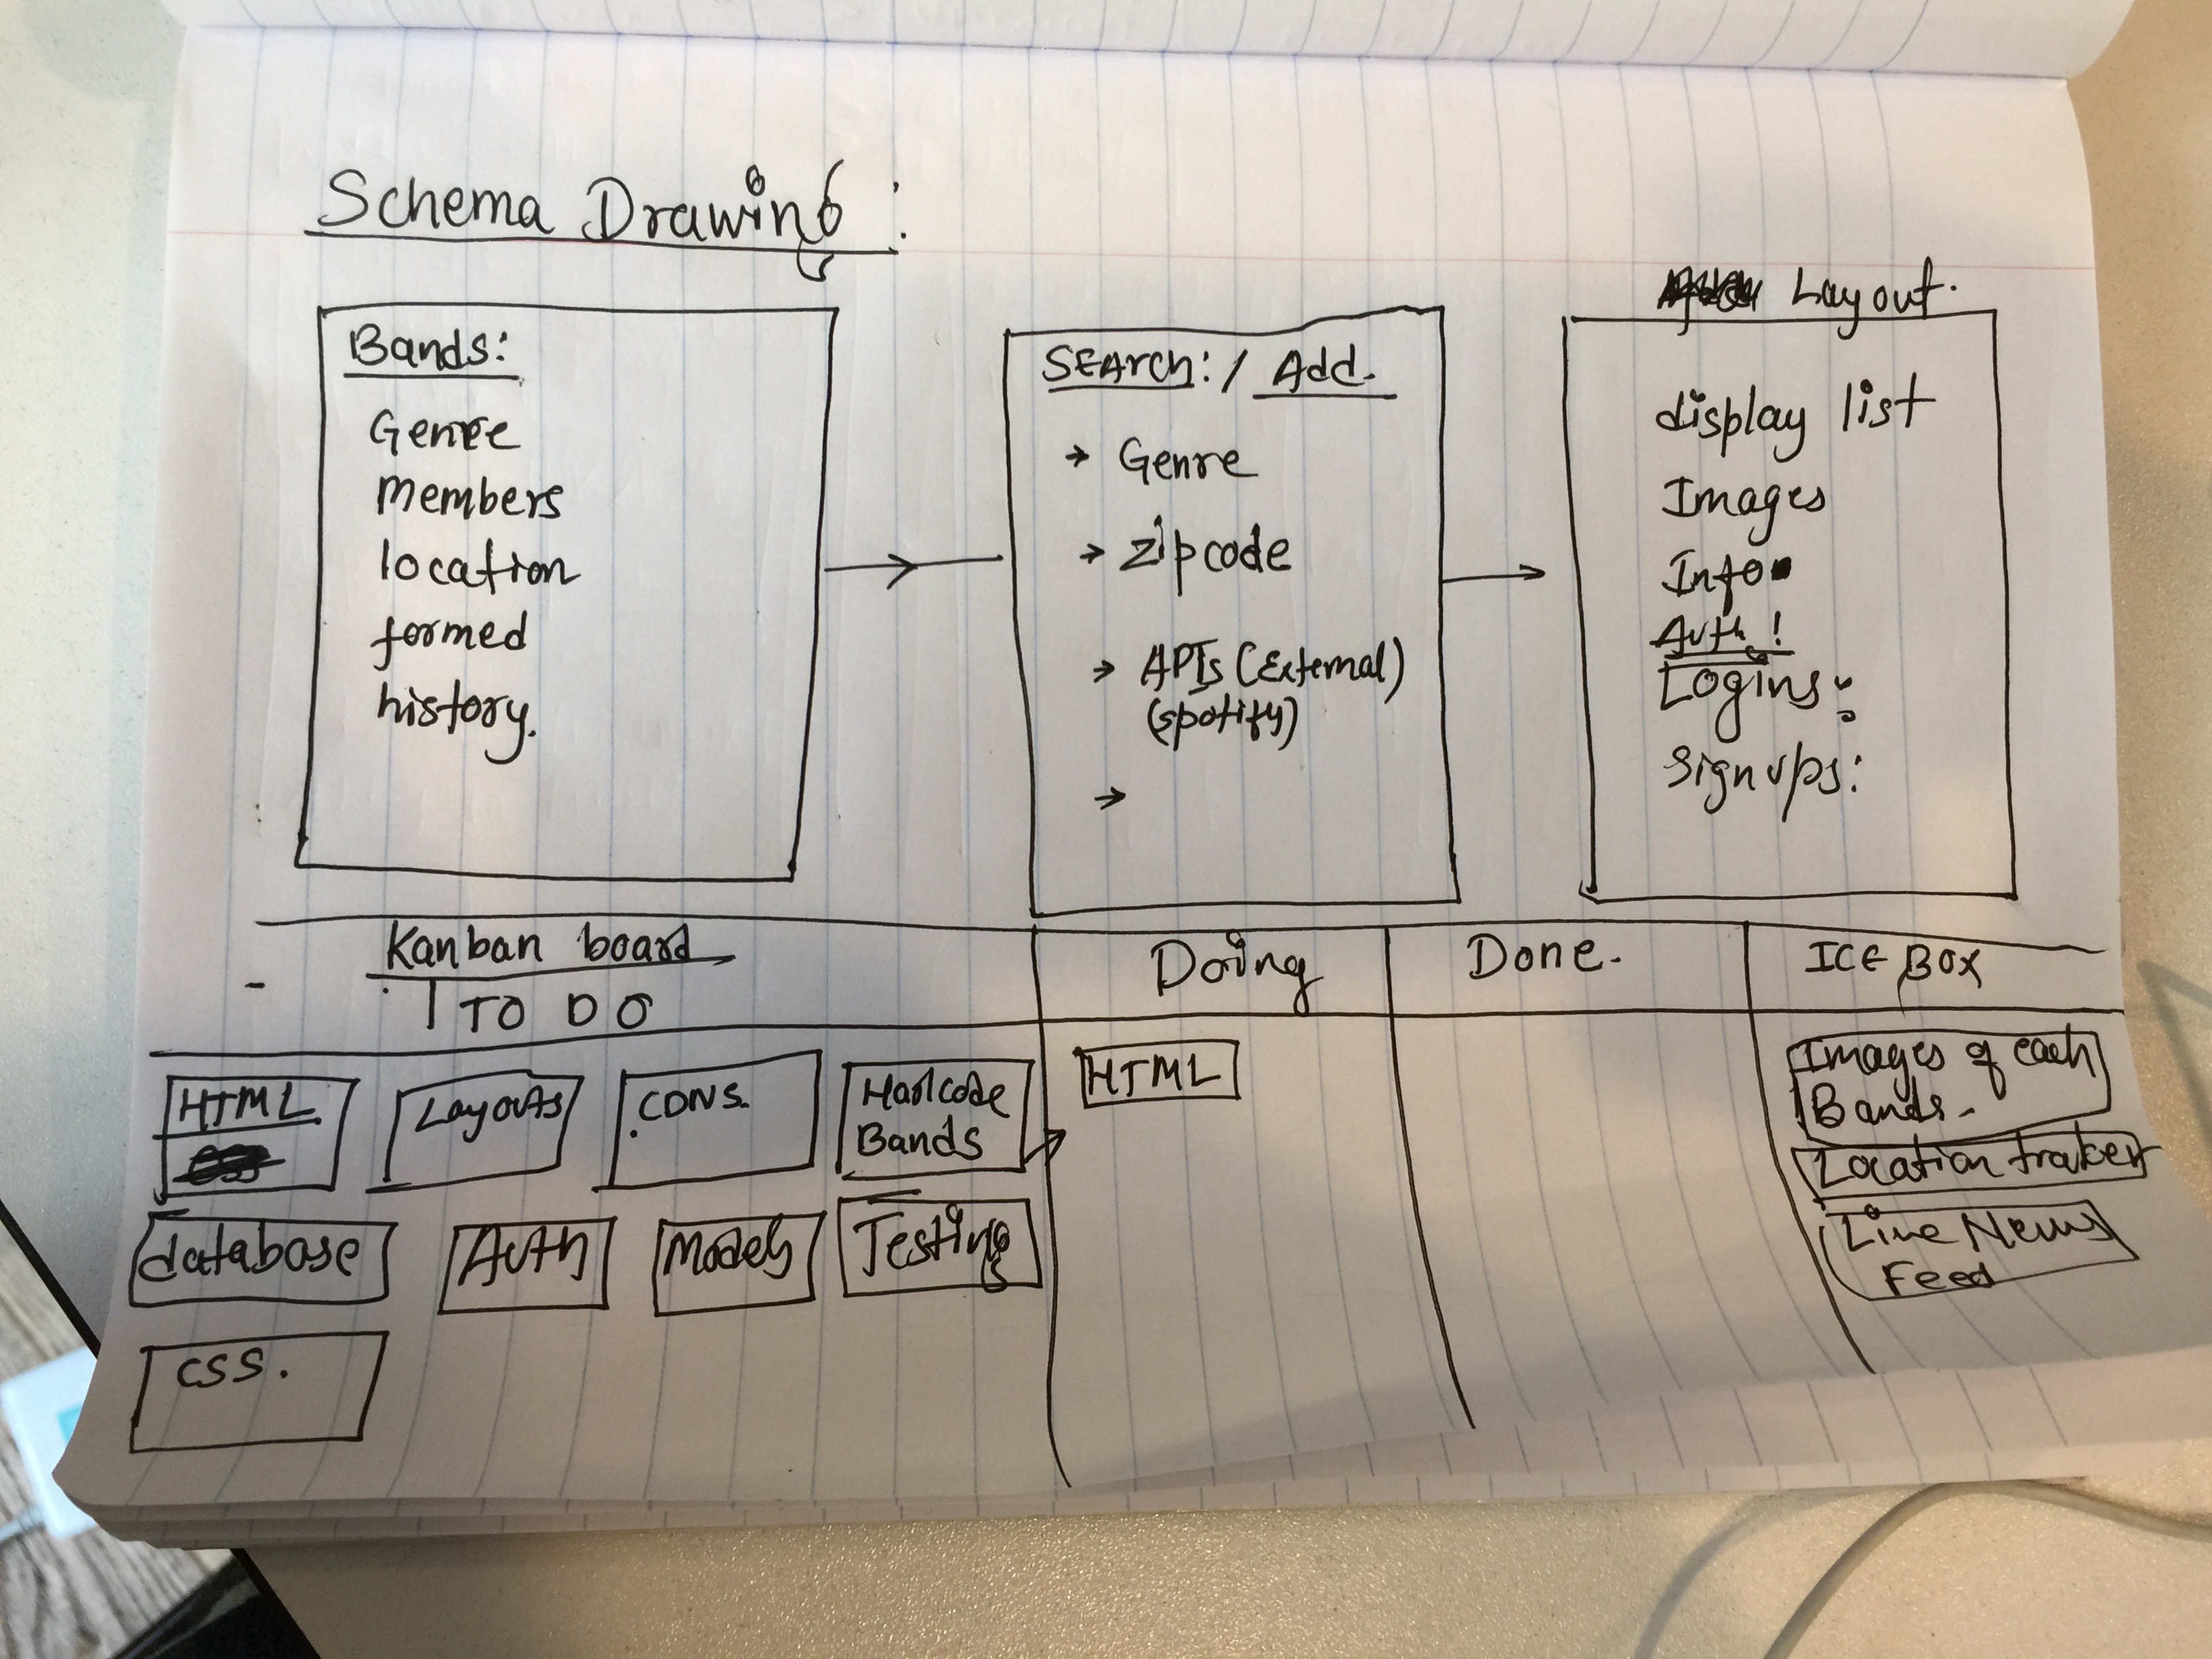 Schema Drawing:
Bands:
Genre
Members
location
formed
history.
SEARCH: / Add.
→ Genre
→ Zipcode
→ APIs (External)
(spotify)
→
Layout.
display list
Images
Info
Auth!
Logins:
Signups:
Kanban board
TO DO
Doing
Done.
ICE BOX
HTML
Layouts
CDNS.
Hardcode
Bands
database
Auth
Models
Testing
CSS.
HTML
Images of each
Bands.
Location traker
Live News
Feed